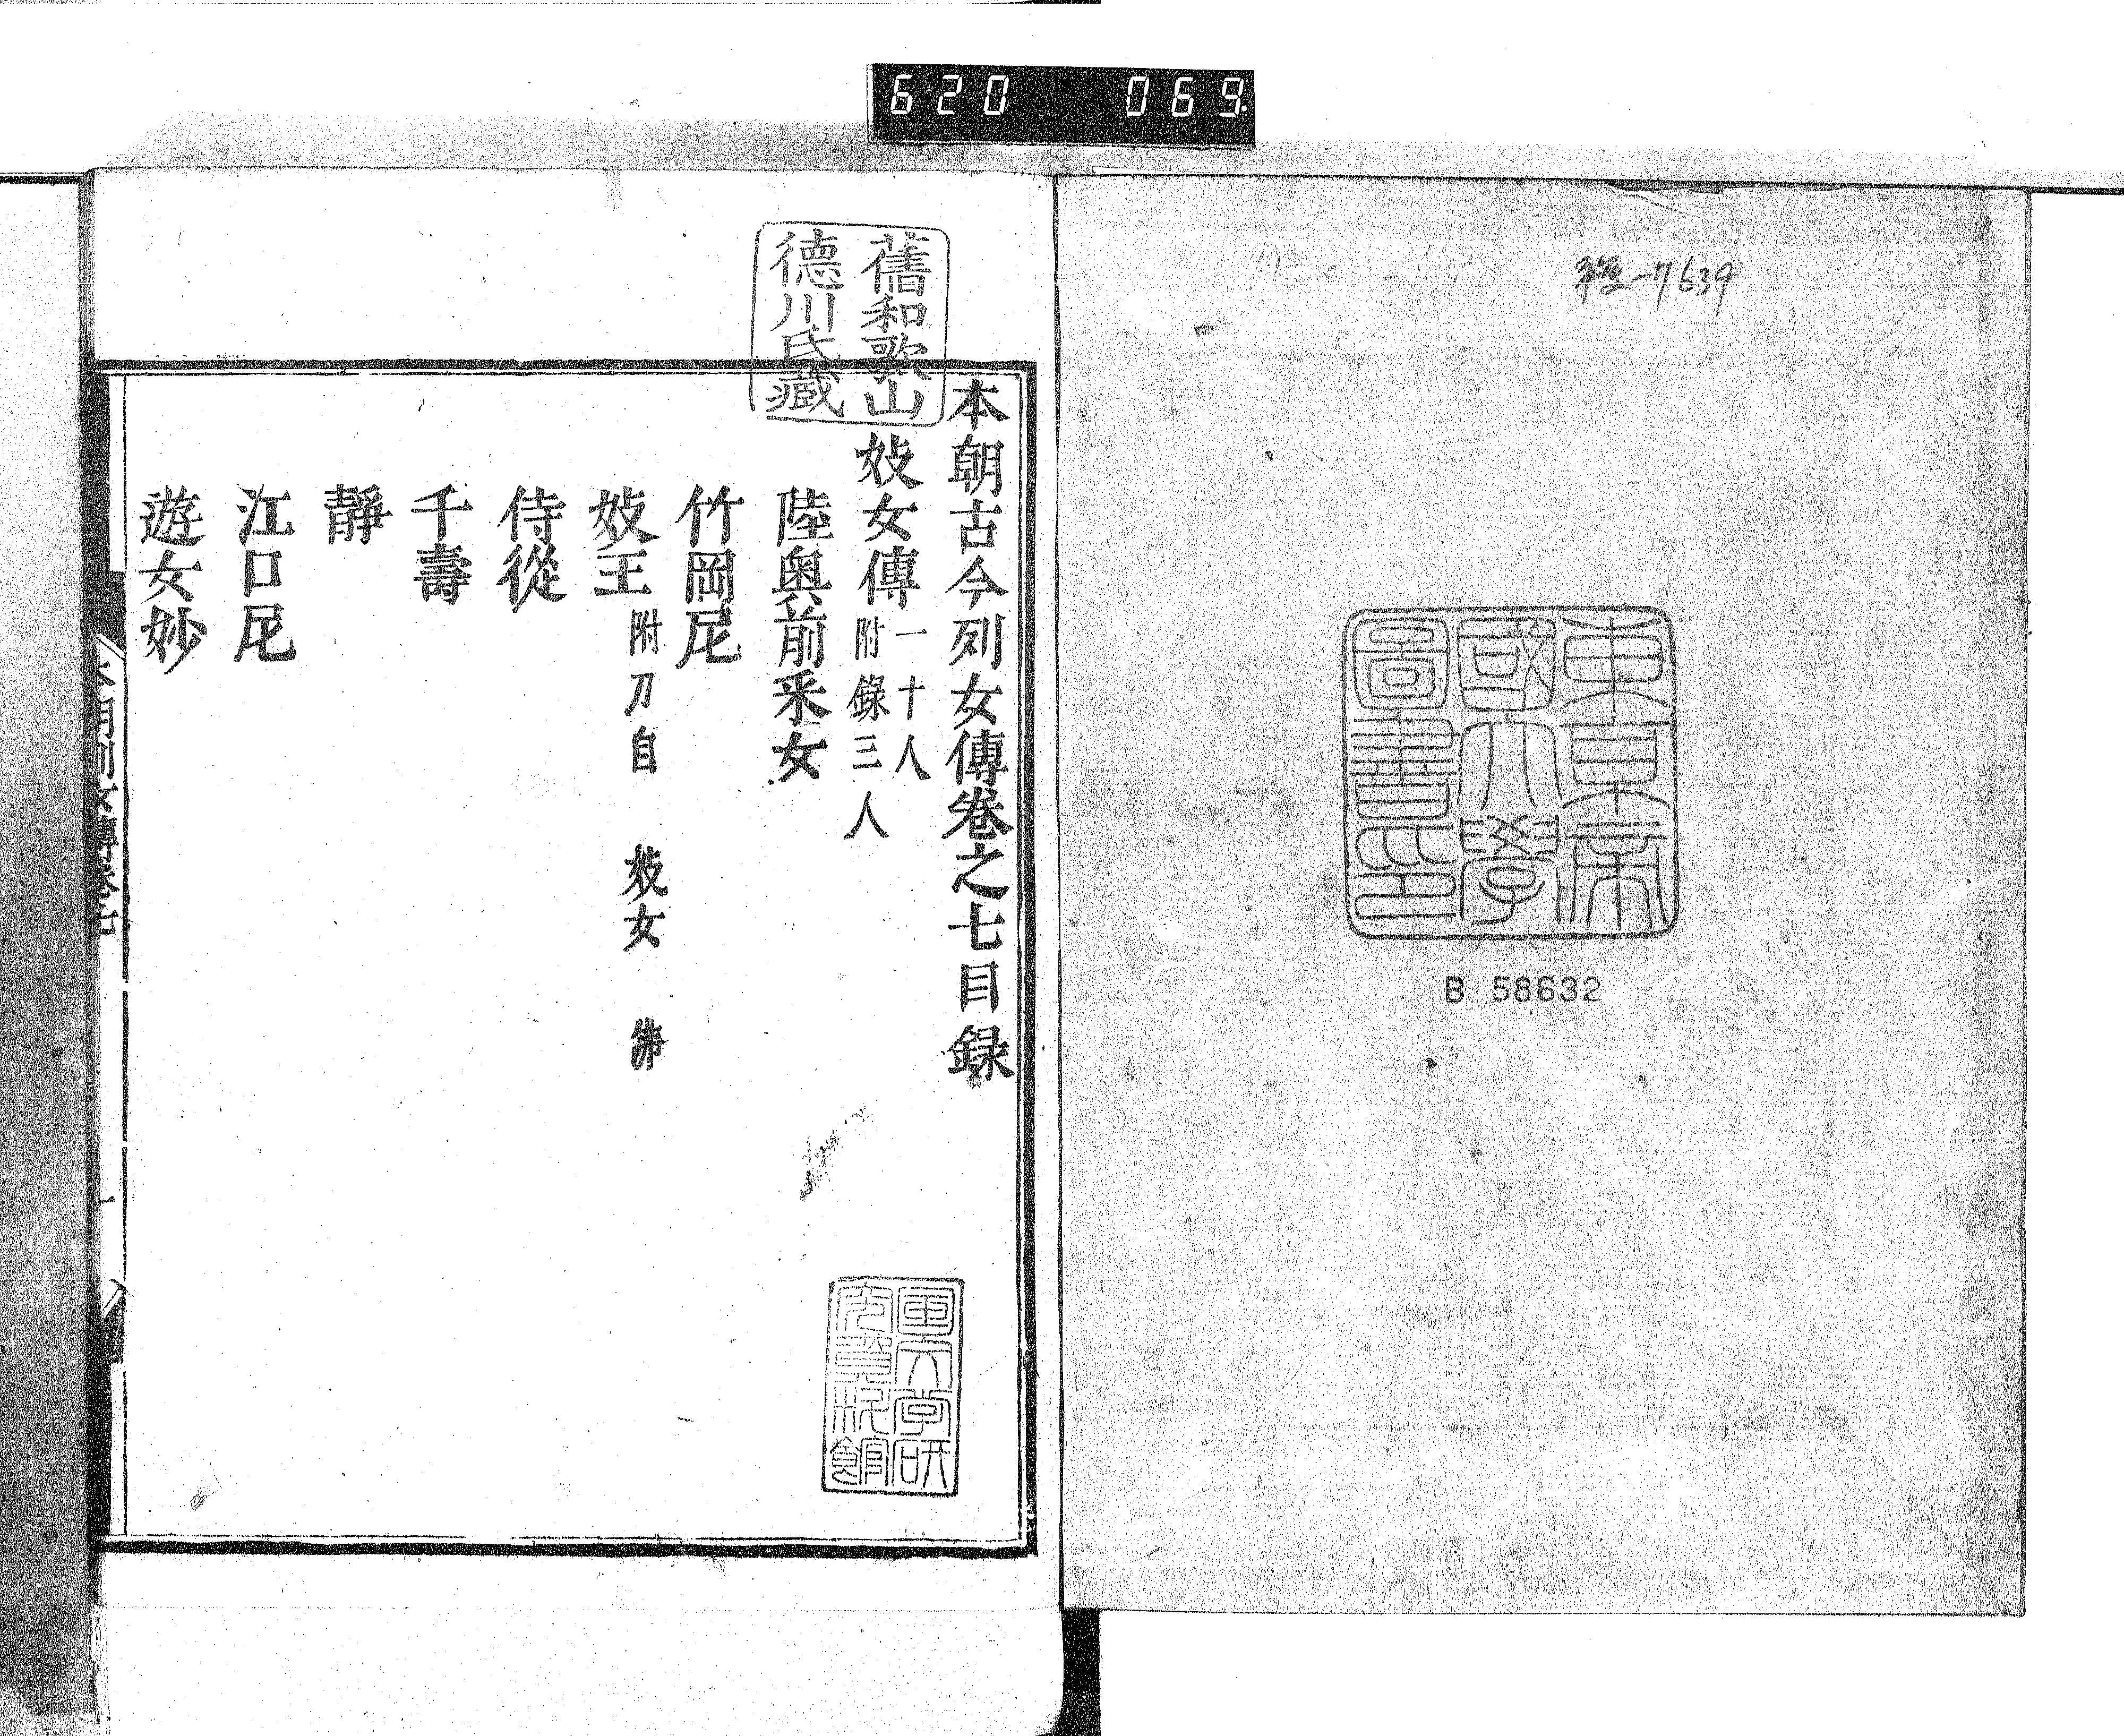 620 069
7639
東京帝
國大學
圖書印
B 58632
舊和歌山
德川氏藏
本朝古今列女傳卷之七目録
妓女傳 一十人
附錄三人
陸奧前釆女
竹岡尼
妓王 附刀自 妓女 佛
侍從
千壽
靜
江口尼
遊女妙